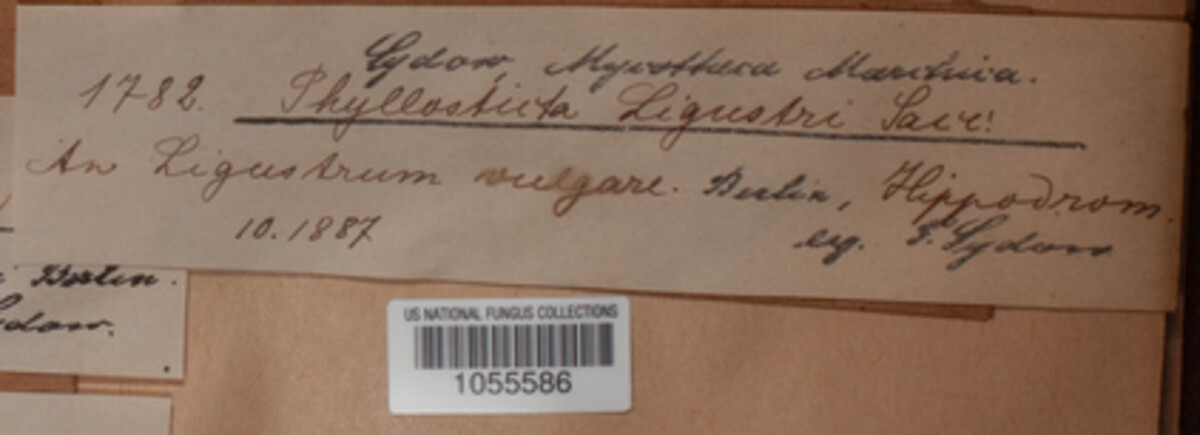 Sydow, Mycotheca Marchica.
1782. Phyllosticta Ligustri Sacc!
An Ligustrum vulgare. Berlin, Hippodrom.
10. 1887
leg. P. Sydow
Berlin.
Sydow.
US NATIONAL FUNGUS COLLECTIONS
1055586